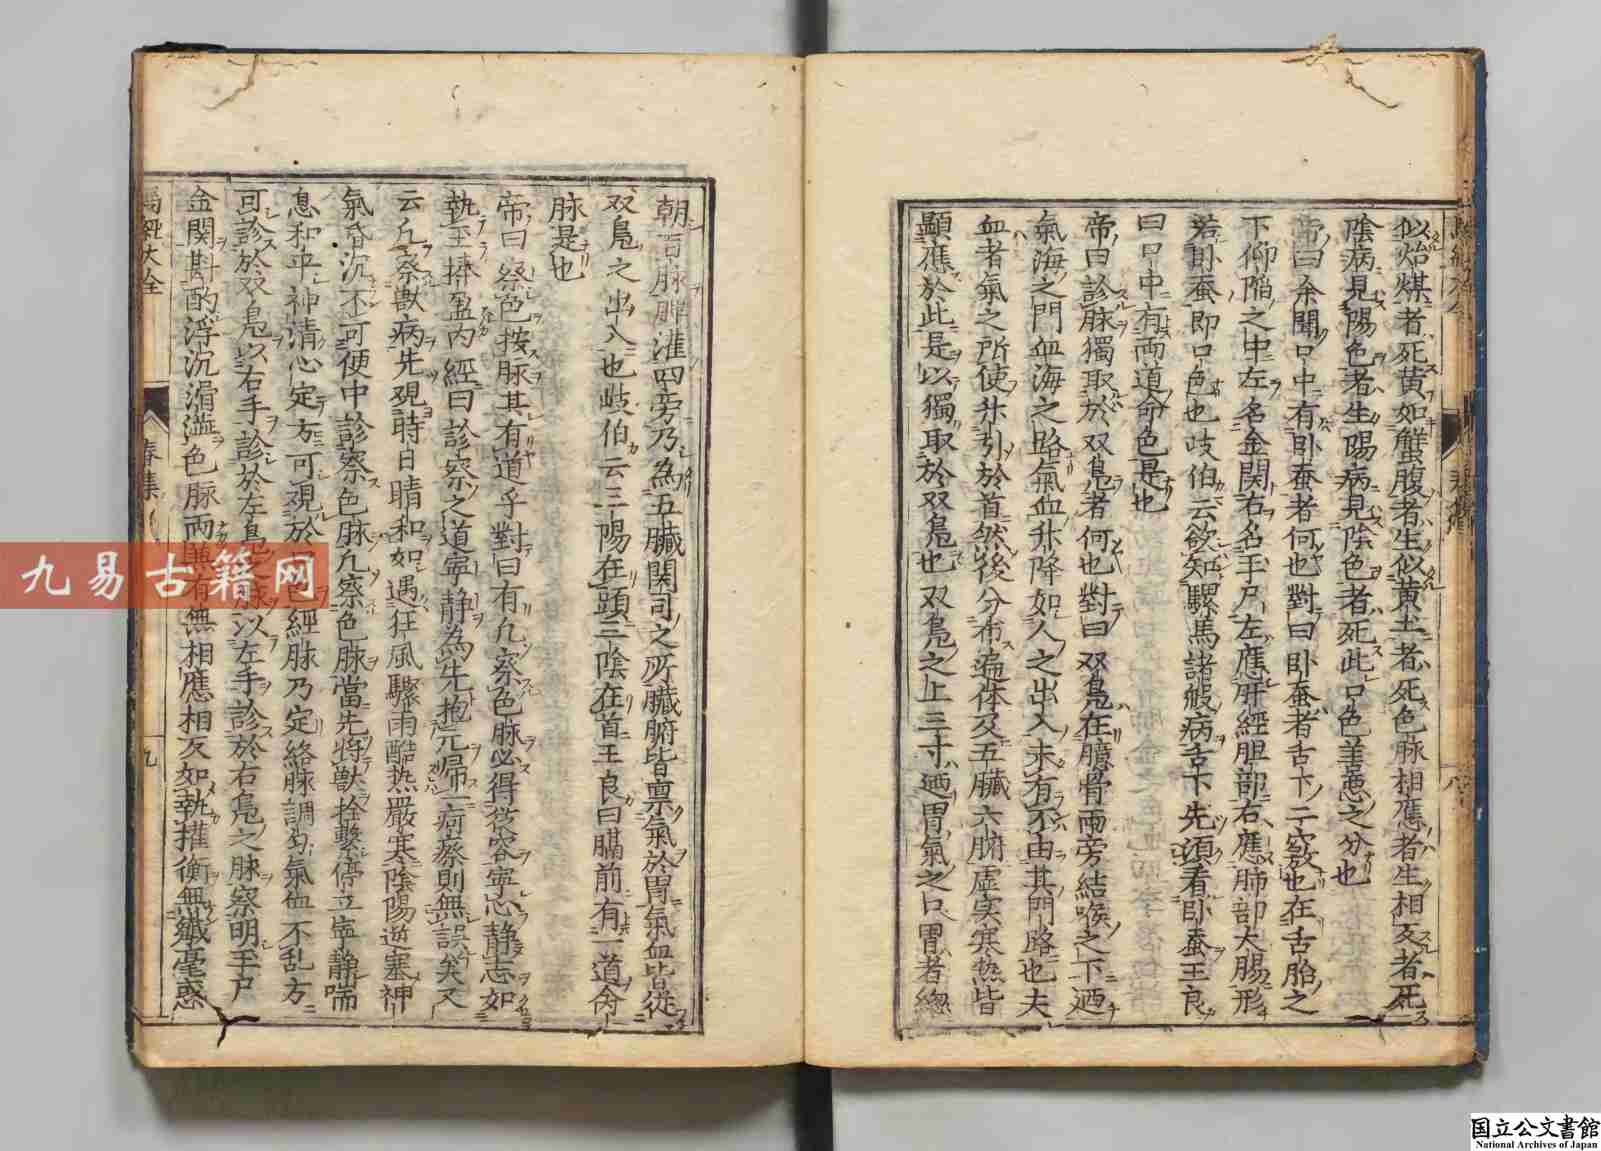 似炲煤者死黄如蟹腹者生似黄土者死色脉相應者生相反者死
陰病見陽色者生陽病見陰色者死此口色善惡之分也
帝曰余聞口中有卧蚕者何也對曰卧蚕者舌下二竅也在舌胎之
下仰陷之中左名金関右名玉戸左應肝經胆部右應肺部大腸形
若卧蚕即口色也岐伯云欲知騾馬諸般病舌下先須看卧蚕王良
曰口中有両道命色是也
帝曰診脉獨取於双鳬者何也對曰双鳬在臆骨両旁結喉之下廼
氣海之門血海之路氣血升降如人之出入未有不由其門路也夫
血者氣之所使升引於首然後分布遍体及五臓六腑虚実寒热皆
顯應於此是以獨取於双鳬也双鳬之上三寸廼胃氣之口胃者総
朝百脉脾灌四旁乃為五臓関司之所臓腑皆禀氣於胃氣血皆從
双鳬之出入也岐伯云三陽在頭三陰在首王良曰膈前有一道命
脉是也
帝曰察色按脉其有道乎對曰有凡察色脉必得従容寧心静志如
執玉捧盈内經曰診察之道寧静為先抱元帰一病療則無誤矣又
云凡察獣病先視時日晴和如遇狂風驟雨酷热厳寒陰陽逆塞神
氣昏沉不可便中診察色脉凡察色脉當先将獣拴繫停立寧静喘
息和平神清心定方可視於色經脉乃定絡脉調匀氣血不乱方
可診於双鳬以右手診於左鳬之脉以左手診於右鳬之脉察明玉戸
金関斟酌浮沉滑濇色脉両有無相應相反如執権衡無纎毫惑
馬經大全
春集
九
八
九易古籍网
国立公文書館
National Archives of Japan